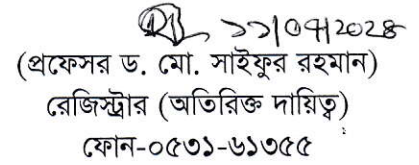 ১১/০৭/২০২৪
(প্রফেসর ড. মো. সাইফুর রহমান)
রেজিস্ট্রার (অতিরিক্ত দায়িত্ব)
ফোন-০৫৩১-৬১৩৫৫